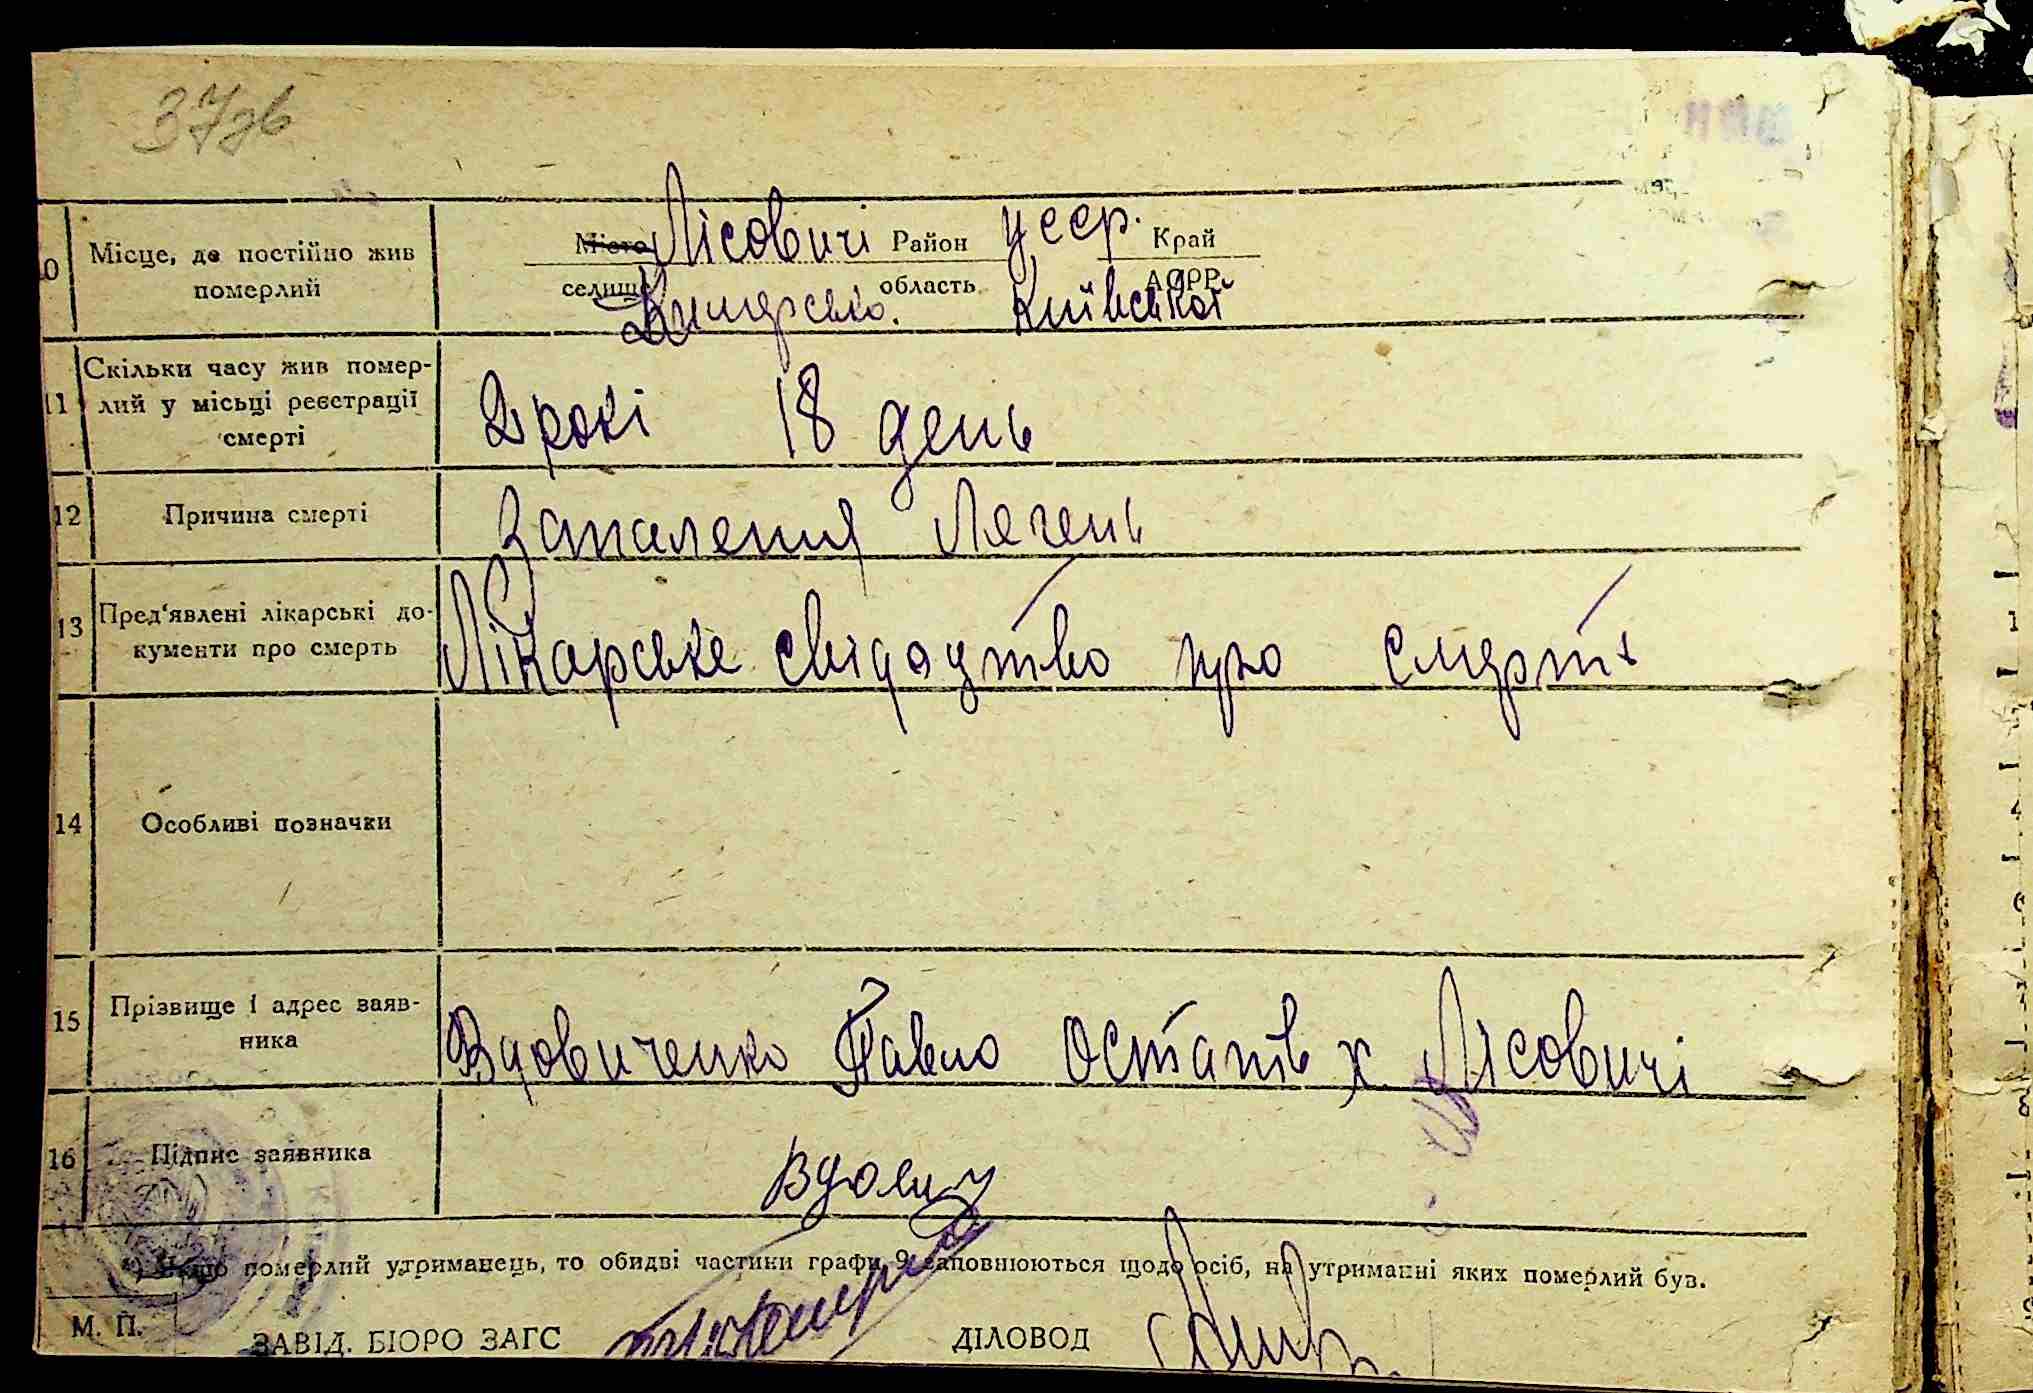 37зв
10 Місце, де постійно жив померлий
Місто Лісовичі Район УССР. Край
селище область Київської АСРР
11 Скільки часу жив помер-
лий у місьці реєстрації
смерті
2 рокі 18 день
12 Причина смерті Запалення Легень
13 Пред'явлені лікарські до-
кументи про смерть
Лікарське свідоцтво про смерть
14 Особливі позначки
15 Прізвище і адрес заяв-
ника
Вдовиченко Павло Остапів х. Лісовичі
16 Підпис заявника
померлий утриманець, то обидві частини графи 9 заповнюються щодо осіб, на утриманні яких померлий був.
М. П. ЗАВІД. БЮРО ЗАГС ДІЛОВОД